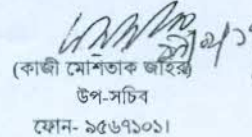 (কাজী মোশতাক জহির)
উপ-সচিব
ফোন- ৯৫৬৭১০১।